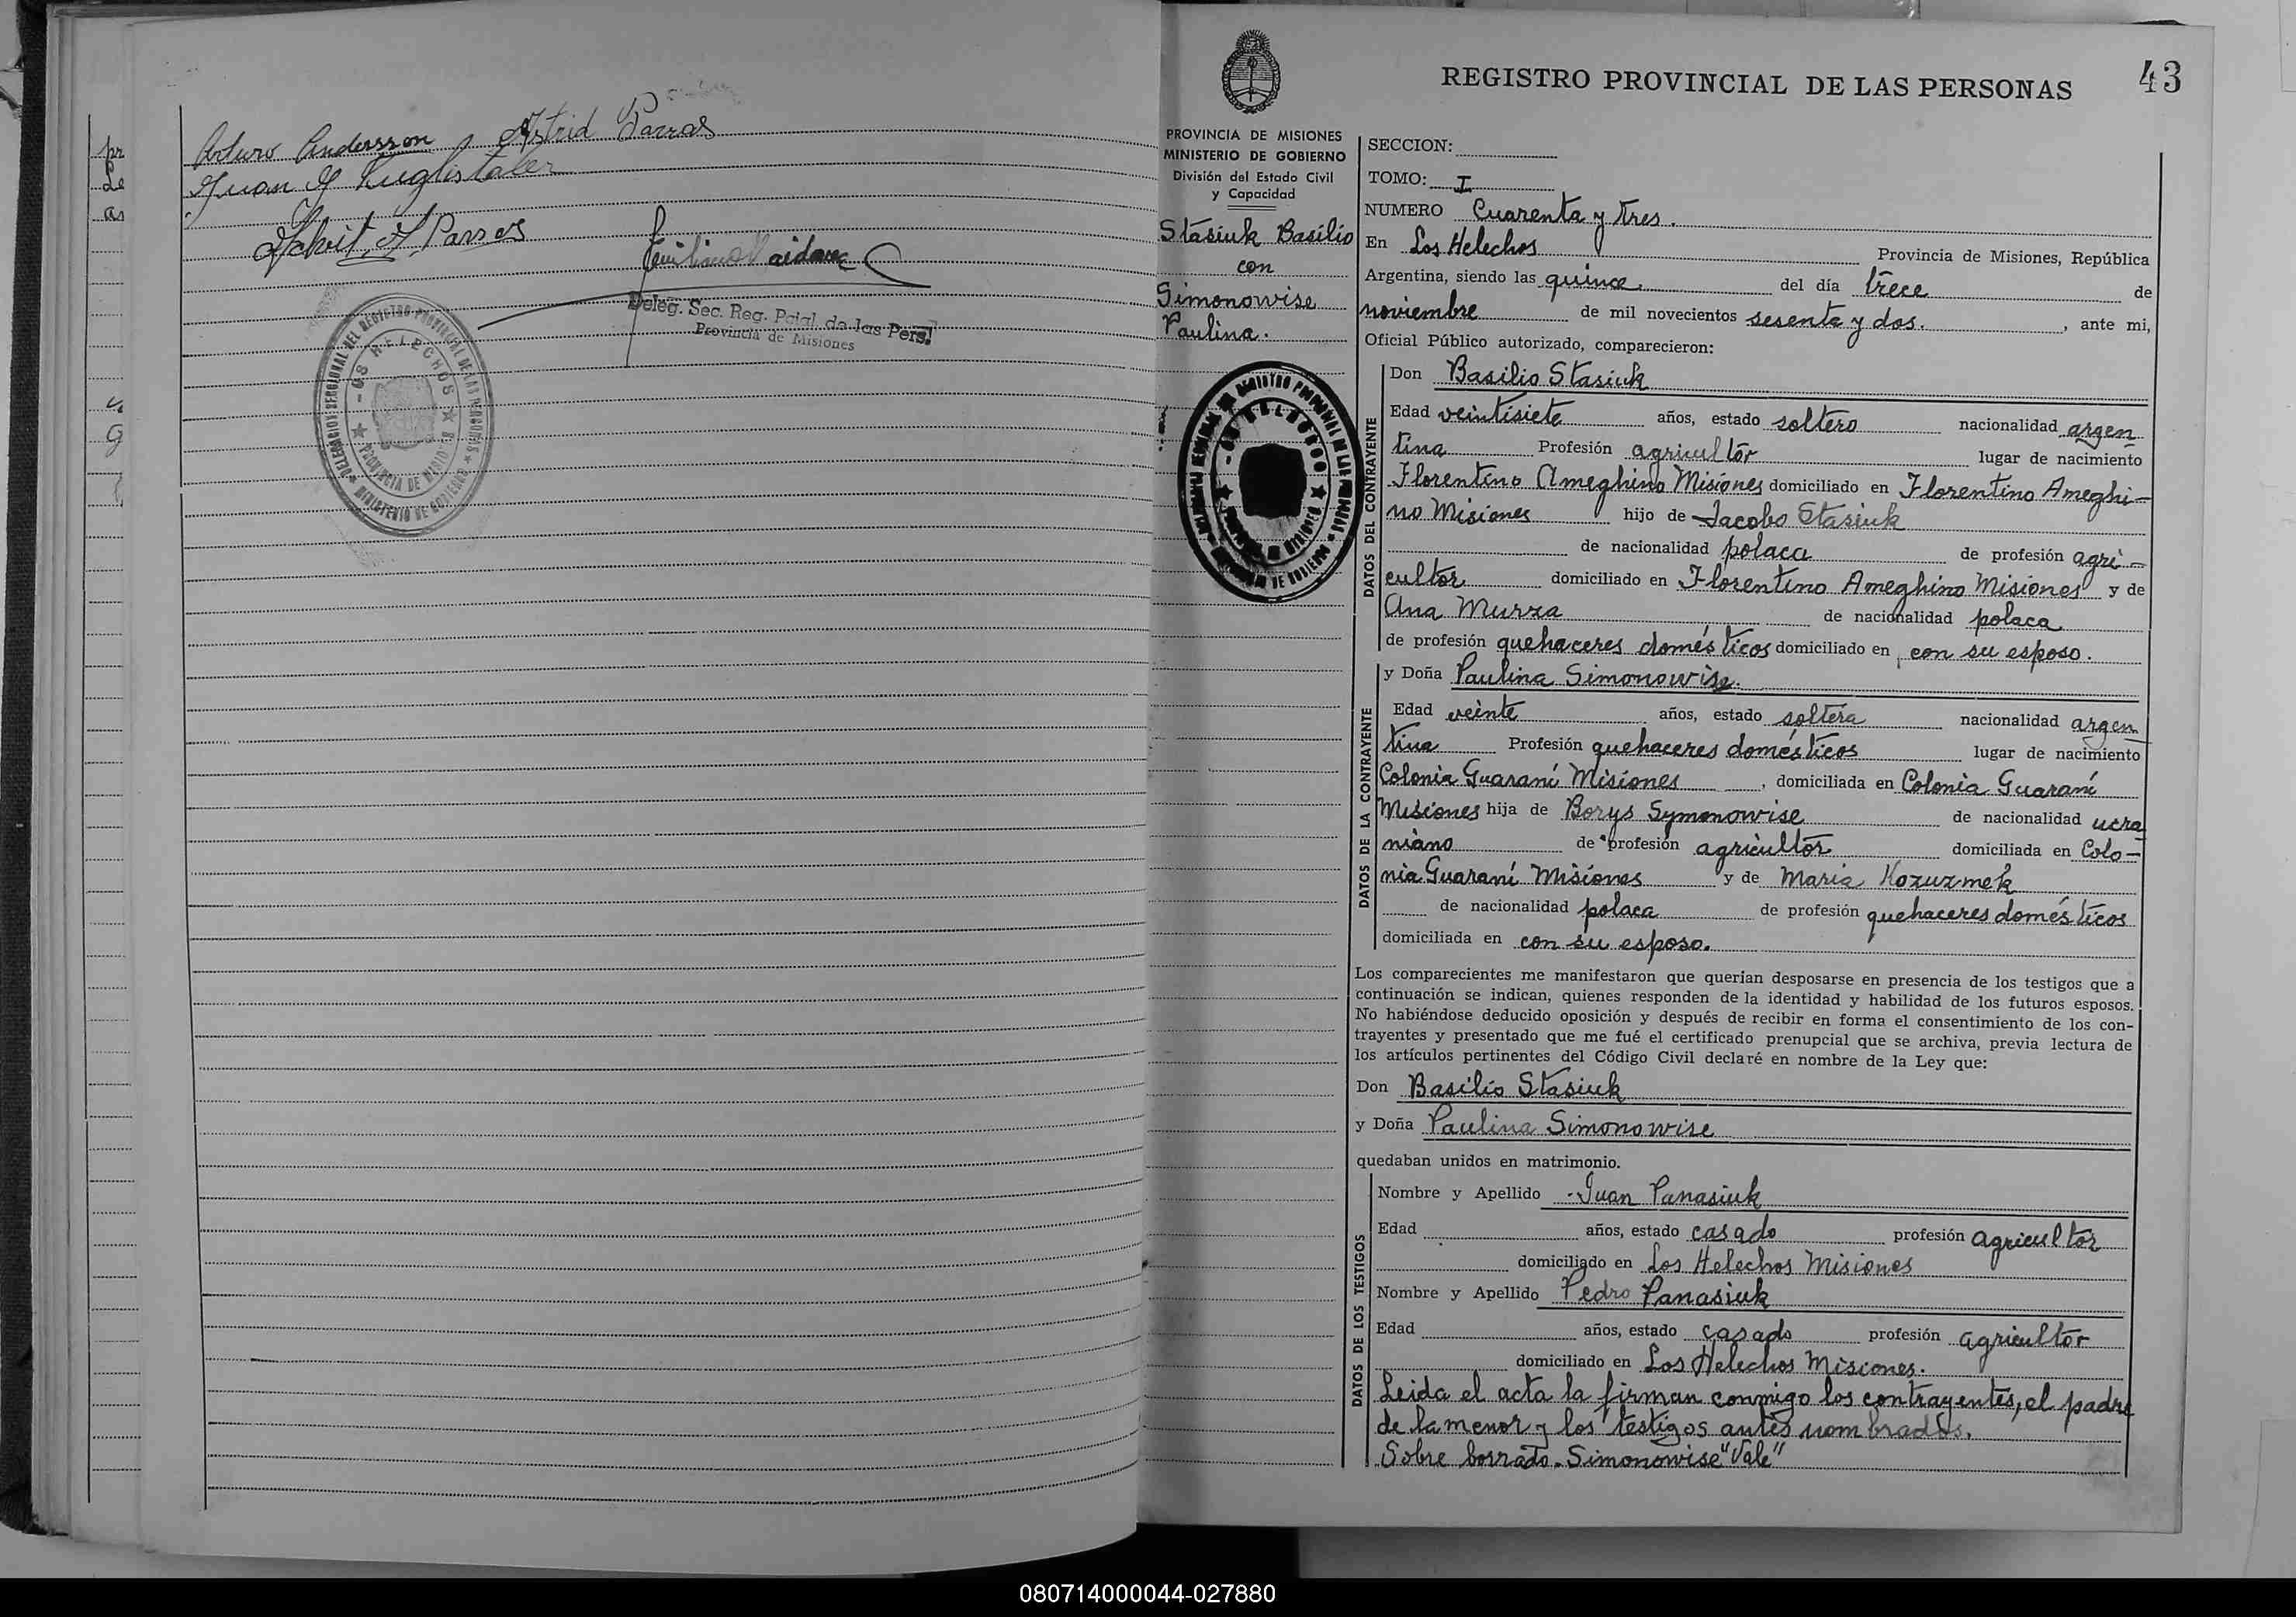 Arturo Andersson Astrid Parras
Deleg. Sec. Reg. Pcial. de las Pers.
Provincia de Misiones
DELEGACION SECCIONAL DEL REGISTRO PROVINCIAL DE LAS PERSONAS
LOS HELECHOS
PROVINCIA DE MISIONES
MINISTERIO DE GOBIERNO
PROVINCIA DE MISIONES
MINISTERIO DE GOBIERNO
División del Estado Civil
y Capacidad
Stasiuk Basilio
con
Simonowise
Paulina.
REGISTRO PROVINCIAL DE LAS PERSONAS 43
SECCION:
TOMO: I
NUMERO Cuarenta y tres.
En Los Helechos Provincia de Misiones, República
Argentina, siendo las quince del día trece de
noviembre de mil novecientos sesenta y dos. , ante mi,
Oficial Público autorizado, comparecieron:
DATOS DEL CONTRAYENTE
Don Basilio Stasiuk
Edad veintisiete años, estado soltero nacionalidad argen
tina Profesión agricultor lugar de nacimiento
Florentino Ameghino Misiones domiciliado en Florentino Ameghi-
no Misiones hijo de Jacobo Stasiuk
de nacionalidad polaca de profesión agri-
cultor domiciliado en Florentino Ameghino Misiones y de
Ana Murza de nacionalidad polaca
de profesión quehaceres domésticos domiciliado en con su esposo.
DATOS DE LA CONTRAYENTE
y Doña Paulina Simonowise.
Edad veinte años, estado soltera nacionalidad argen
tina Profesión quehaceres domésticos lugar de nacimiento
Colonia Guaraní Misiones , domiciliada en Colonia Guaraní
Misiones hija de Borys Symonowise de nacionalidad ucra
niano de profesión agricultor domiciliada en Colo-
nia Guaraní Misiones y de Maria Kozuzmek
de nacionalidad polaca de profesión quehaceres domésticos
domiciliada en con su esposo.
Los comparecientes me manifestaron que querían desposarse en presencia de los testigos que a
continuación se indican, quienes responden de la identidad y habilidad de los futuros esposos.
No habiéndose deducido oposición y después de recibir en forma el consentimiento de los con-
trayentes y presentado que me fué el certificado prenupcial que se archiva, previa lectura de
los artículos pertinentes del Código Civil declaré en nombre de la Ley que:
Don Basilio Stasiuk
y Doña Paulina Simonowise
quedaban unidos en matrimonio.
DATOS DE LOS TESTIGOS
Nombre y Apellido Juan Panasiuk
Edad años, estado casado profesión agricultor
domiciliado en Los Helechos Misiones
Nombre y Apellido Pedro Panasiuk
Edad años, estado casado profesión agricultor
domiciliado en Los Helechos Misiones.
Leida el acta la firman conmigo los contrayentes, el padre
de la menor y los testigos antes nombrados.
Sobre borrado. Simonowise "Vale"
080714000044-027880